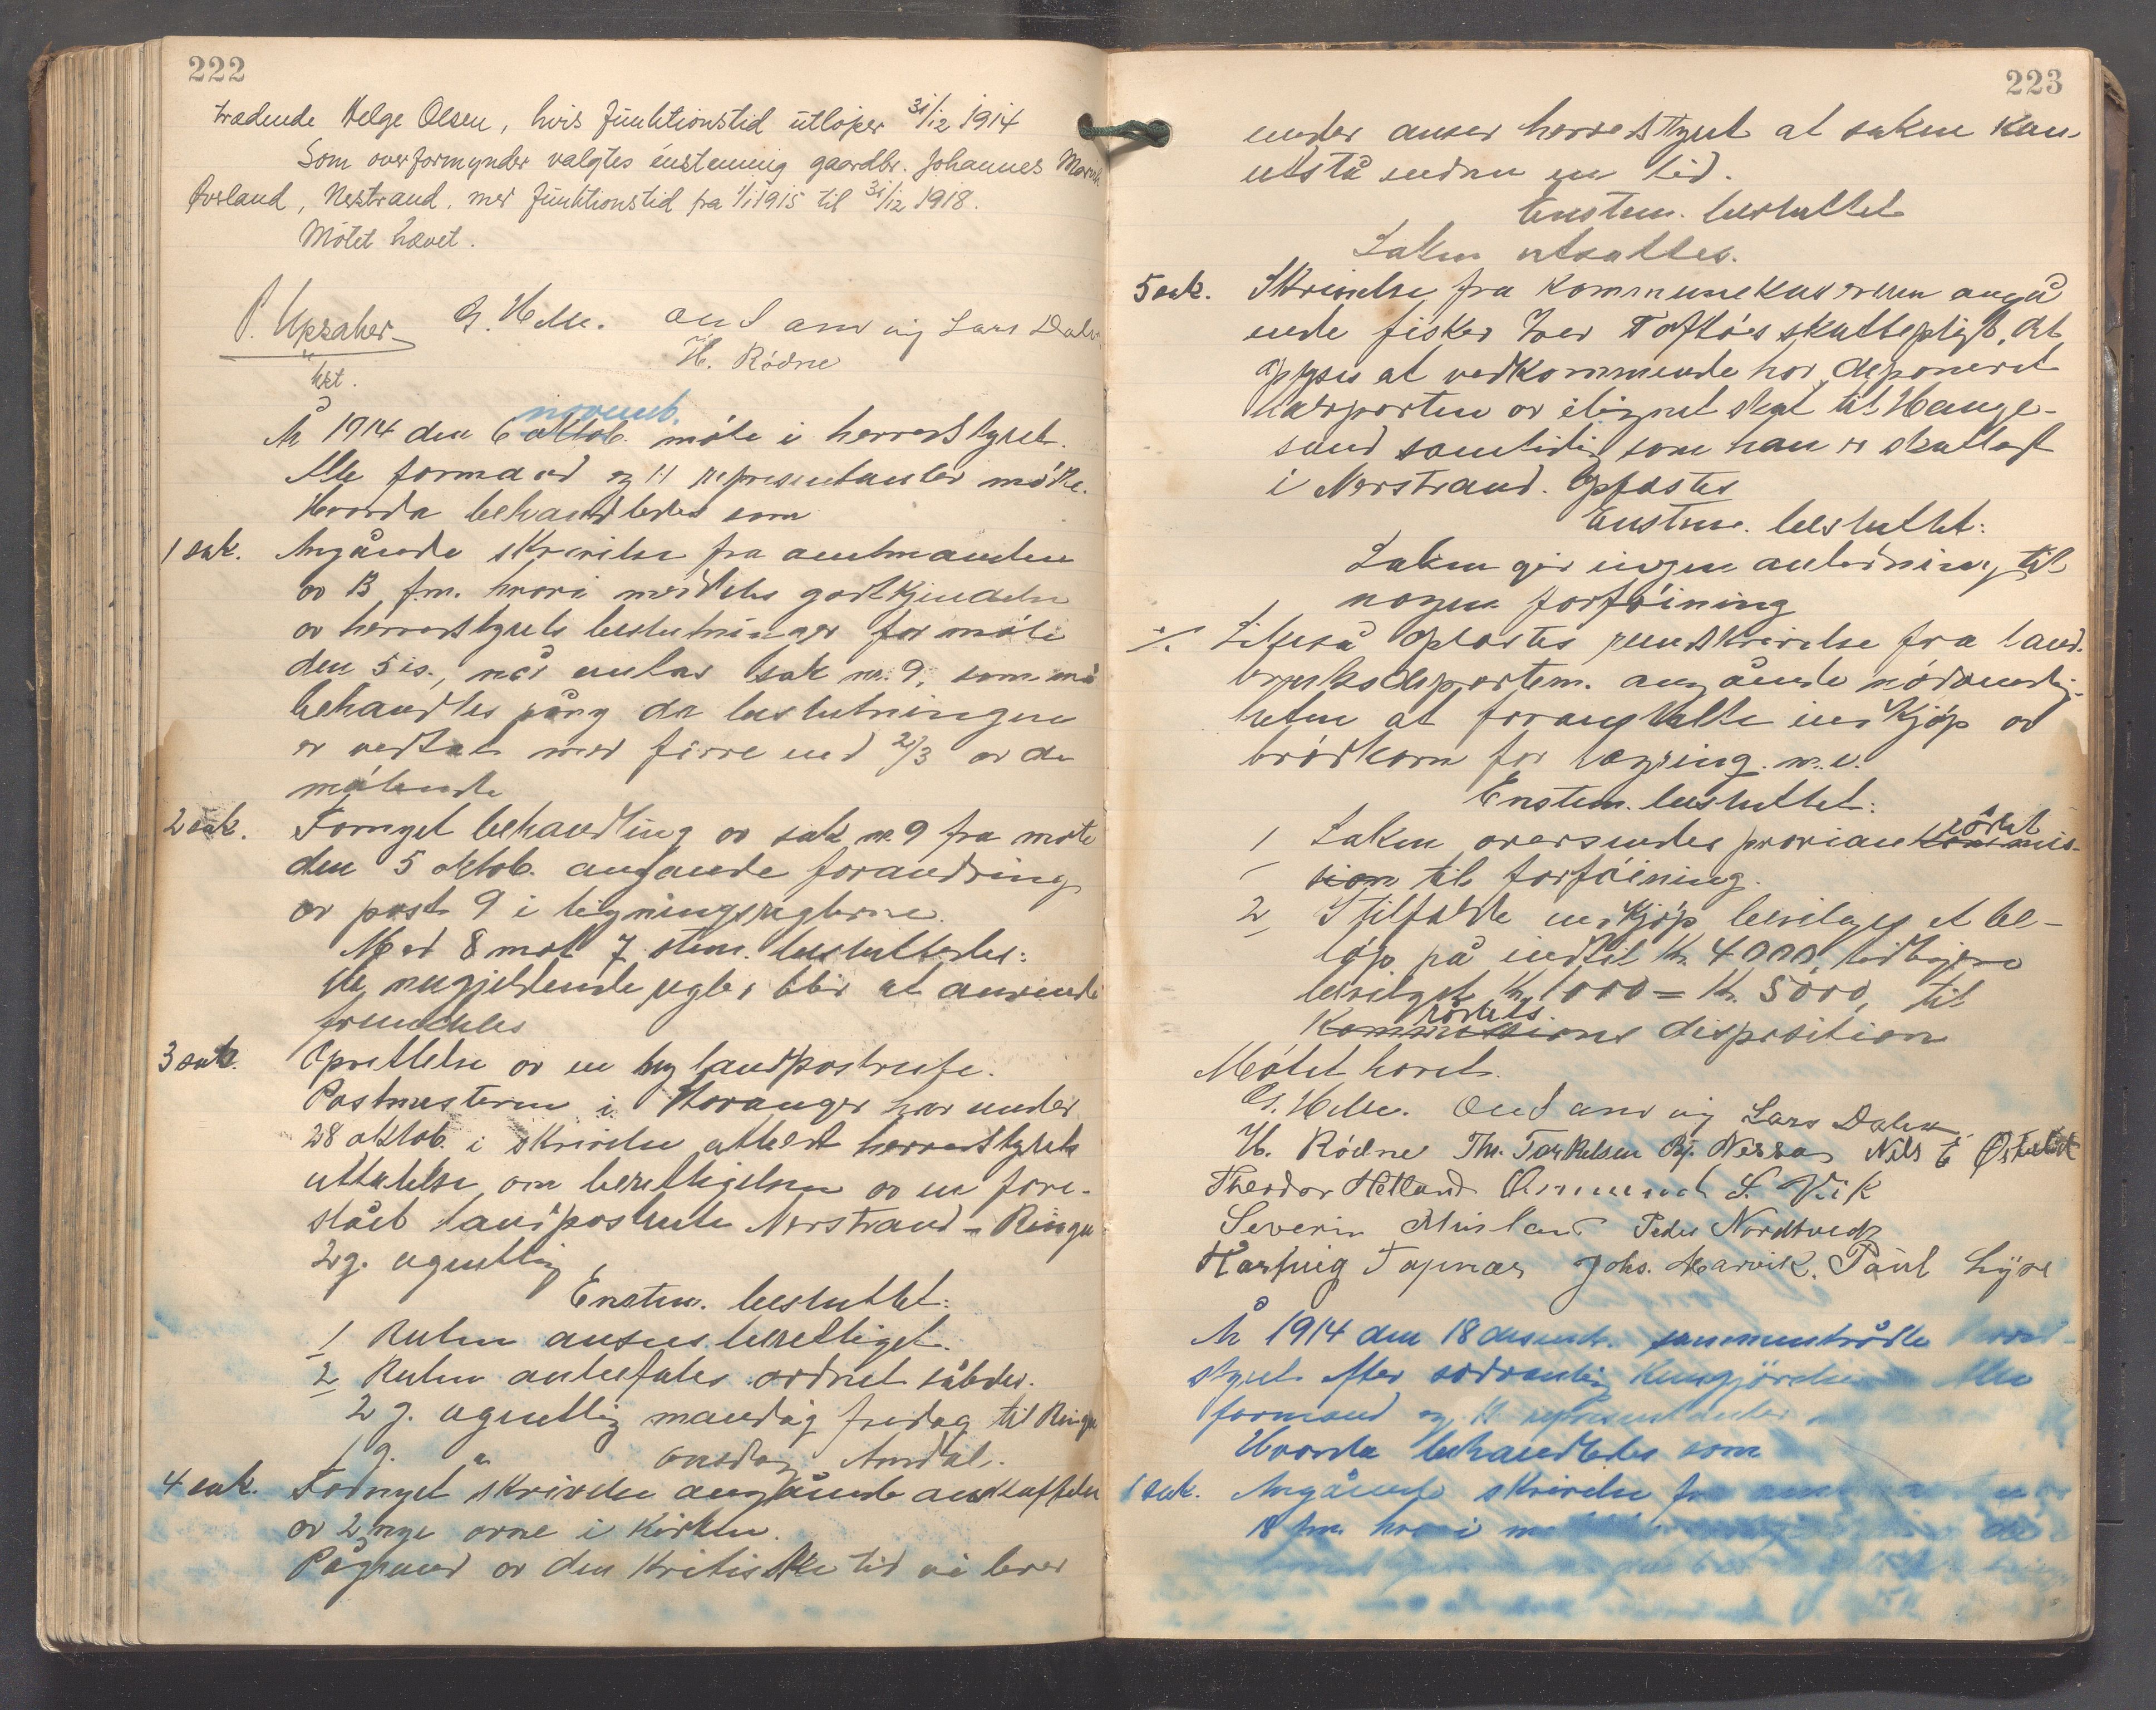 222
trædende Helge Olsen, hvis funktionstid utløper 31/12 1914
Som overformynder valgtes enstemmig gaardbr. Johannes
Øvsland, Nerstrand, med funktionstid fra 1/1 1915 til 31/12 1918.
Møtet hævet.
G. Helle. Lars Dalva
H. Rødne
År 1914 den 6 oktob. novemb. møte i herredstyret.
Alle formænd og 11 repræsentanter møtte.
Hvorda behandledes som
1 sak. Angående skrivelse fra amtmanden
av 13 f.m. hvori meddeles godkjendelse
av herredstyrets beslutninger for møte
den 5 ds., når undtas sak nr. 9, som må
behandles påny da beslutningen
er vedtat med færre end 2/3 av de
møtende
2 sak. Fornyet behandling av sak nr. 9 fra møte
den 5 oktob. angående forandring
av post 9 i ligningsreglerne.
Med 8 mot 7 stem. besluttedes:
De nugjeldende regler blir at anvende
fremdeles
3 sak. Oprettelse av en ny landpostrute.
Postmesteren i Stavanger har under
28 oktob. i skrivelse utbedt herredstyrets
uttalelse om berettigelsen av en fore-
slået landpostrute Nerstrand - Ringu
2 g. ugentlig
Enstem. besluttet:
1 Ruten ansees berettiget.
2 Ruten anbefales ordnet således.
2 g. ugentlig mandag fredag til Ringu
1 g. " onsdag Amdal.
4 sak. Fornyet skrivelse angående anskaffelse
av 2 nye ovne i kirken.
På grund av den kritiske tid vi lever
223
under anser herredstyret at saken kan
utstå endnu en tid.
Enstem. besluttet
Saken utsættes.
5 sak. Skrivelse fra kommunekassereren angå
ende fisker Iver Toftøs skatteplikt. Det
oplyses at vedkommende har deponeret
halvparten av ilignet skat til Hauge-
sund samtidig som han er skatlagt
i Nerstrand. Oplæstes
Enstem. besluttet:
Saken gir ingen anledning til
nogen forføining
./. Likeså oplæstes rundskrivelse fra land-
bruksdepartem. angående nødvendig-
heten at foranstalte indkjøp av
brødkorn for lagring m.v.
Enstem. besluttet:
1 Saken oversendes proviantkommis- rådet
sion til forføining.
2 I tilfælde indkjøp bevilges et be-
løp på indtil kr. 4000, tidligere
bevilget kr. 1000 = kr. 5000, til
Kommissions rådets disposition
Møtet hævet.
G. Helle. Lars Dalva
H. Rødne Th. Torkelsen Bj. Nessa Nils E. Østabø
Theodor Hetland Osmund S. Vik
Severin Misland Peder Nordtvedt
Hartvig Joh's. Marvik. Paul Lyse
År 1914 den 18 desemb. sammentrådte herred-
styret efter sedvanlig kungjørelse Alle
formænd og 11 repræsentanter
Hvorda behandledes som
1 sak. Angående skrivelse fra
18 f.m. hvori